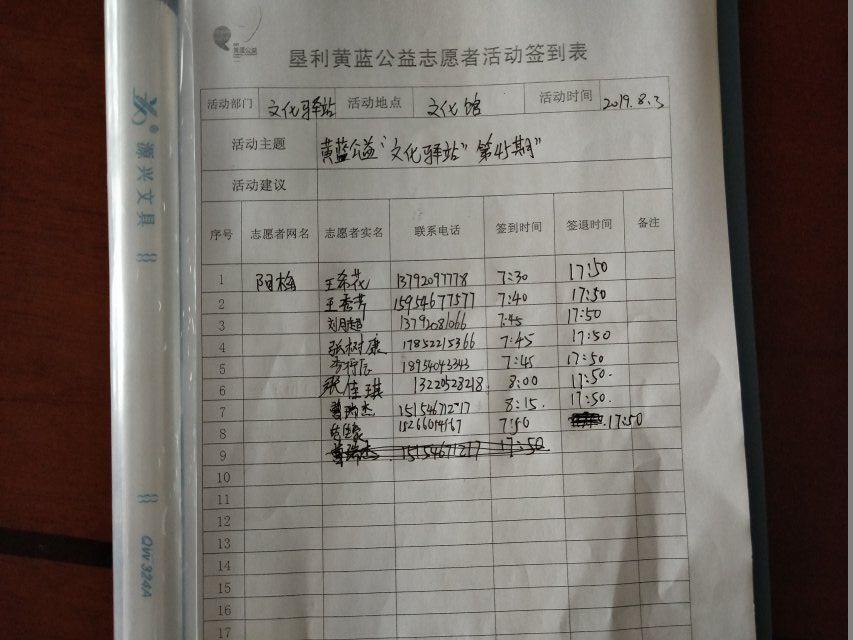 黄蓝公益
垦利黄蓝公益志愿者活动签到表
活动部门 文化驿站 活动地点 文化馆 活动时间 2019.8.3
活动主题 黄蓝公益“文化驿站”第45期”
活动建议
序号 志愿者网名 志愿者实名 联系电话 签到时间 签退时间 备注
1 阳梅 王希花 13792097778 7:30 17:50
2 王秀芳 15954677577 7:40 17:50
3 13792081066 7:45 17:50
4 张树康 17852215366 7:45 17:50
5 18954043343 7:45 17:50
6 张佳琪 13220528218. 8:00 17:50.
7 曹瑞杰 15154671217 8:15. 17:50.
8 7:50 17:50
9 曹瑞杰 15154671217 17:50
10
11
12
13
14
15
16
17
源兴文具
QW 324A